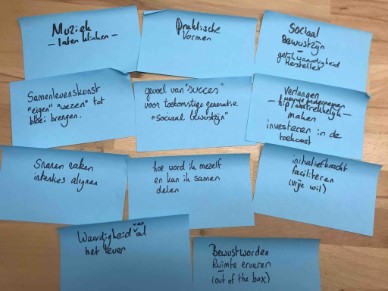 Muziek
- laten klinken -
Praktische
vormen
Sociaal
Bewustzijn
gelijkwaardigheid
herstellen
Samenlevenskunst
"eigen" "wezen" tot
bloei brengen.
gevoel van "succes"
voor toekomstige generatie
"sociaal bewustzijn"
Verlangen
hip/aantrekkelijk
maken
investeren in de
toekomst
Snaren raken
intenties alignen
hoe word ik mezelf
en kan ik samen
delen
initiatiefkracht
faciliteren
(vrije wil)
Waardigheid van
het leven
Bewustworden
Ruimte ervaren
(out of the box)